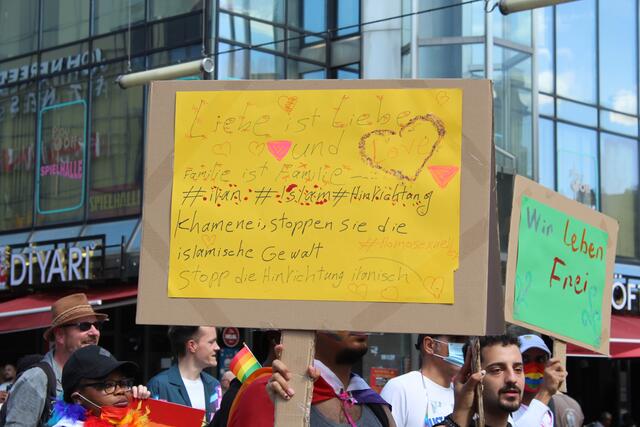 Liebe ist Liebe
und
Love
Familie ist Familie
#iran #Islam #Hinrichtung
Khamenei, stoppen sie die
islamische Gewalt
#Homosexuell
Stopp die Hinrichtung iranisch
Wir Leben
Frei
SPIELHALLE
SPIELHALLE
DIYAR